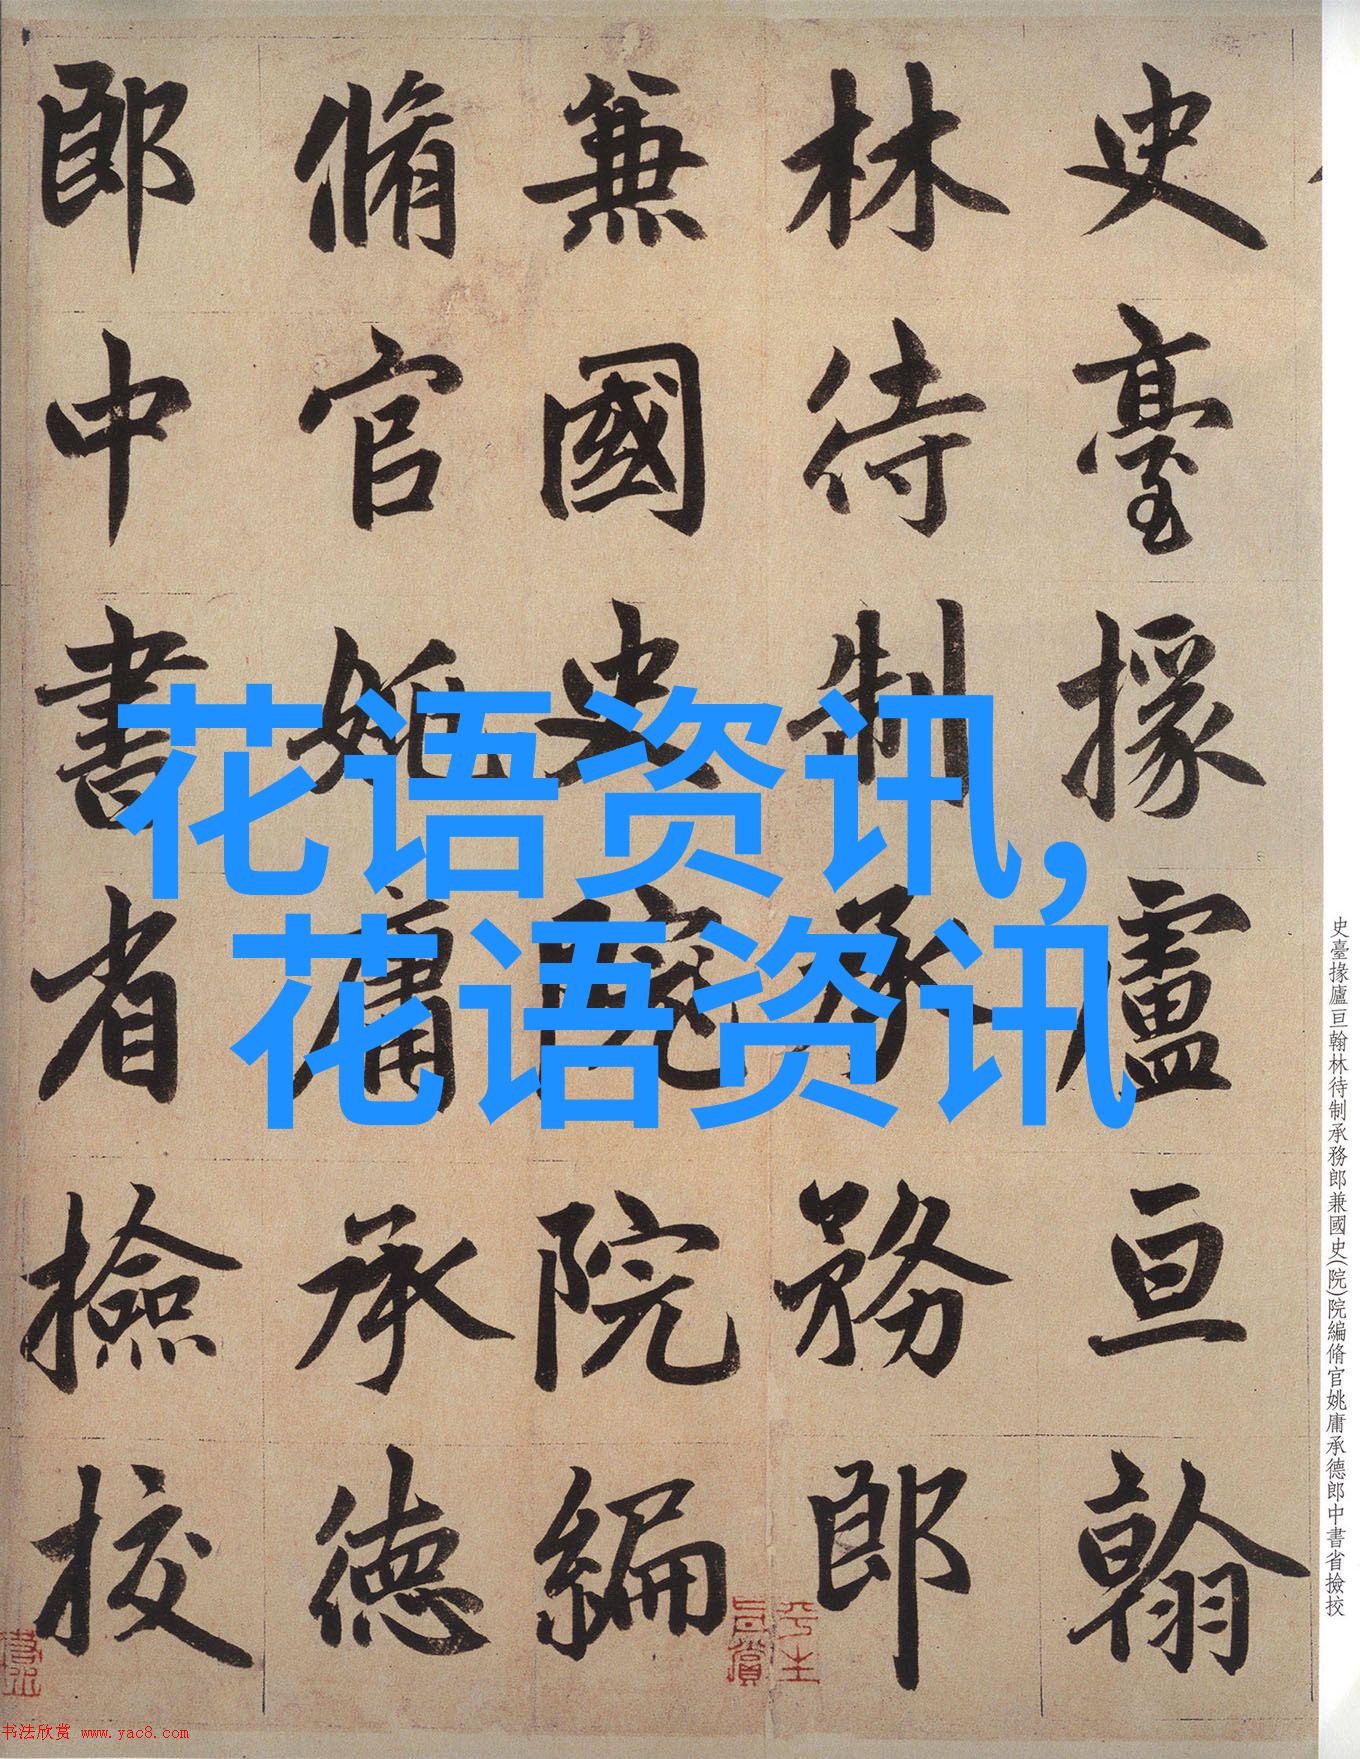 史臺掾盧亘翰
林待制承務郎
兼國史院院編
脩官姚庸承德
郎中書省撿挍
花语资讯,
花语资讯
史臺掾盧亘翰林待制承務郎兼國史(院)院編脩官姚庸承德郎中書省撿挍
平生
書法欣赏 www.yac8.com